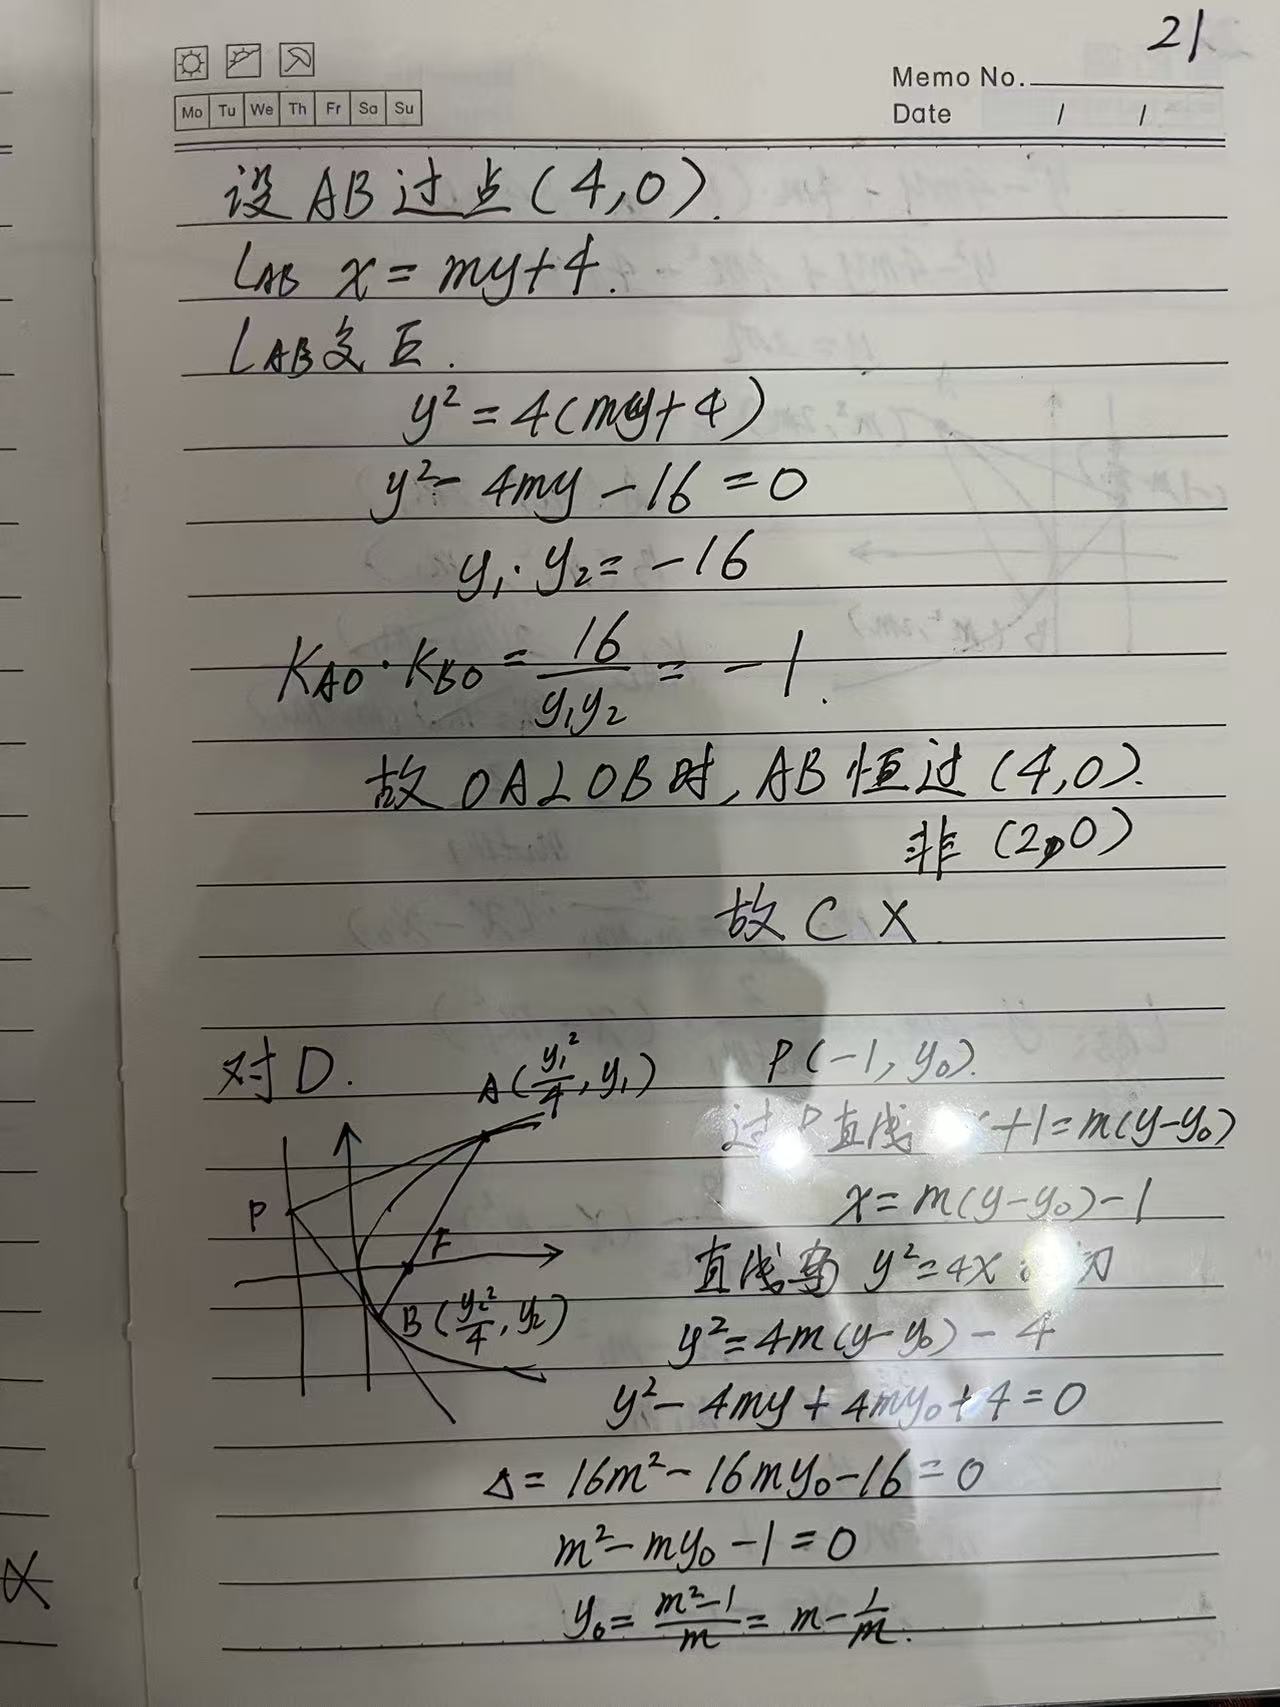 21
Memo No.
Mo Tu We Th Fr Sa Su
Date / /
设AB过点(4,0).
L_AB x=my+4.
L_AB交E.
y²=4(my+4)
y²-4my-16=0
y₁·y₂=-16
K_AO·K_BO=16/(y₁y₂)=-1.
故OA⊥OB时,AB恒过(4,0).
非(2,0)
故C X.
对D.
A(y₁²/4,y₁)
P(-1,y₀).
过P直线 +1=m(y-y₀)
P
x=m(y-y₀)-1
F
直线与y²=4x 切
B(y₂²/4,y₂)
y²=4m(y-y₀)-4
y²-4my+4my₀+4=0
Δ=16m²-16my₀-16=0
m²-my₀-1=0
y₀=(m²-1)/m=m-1/m.